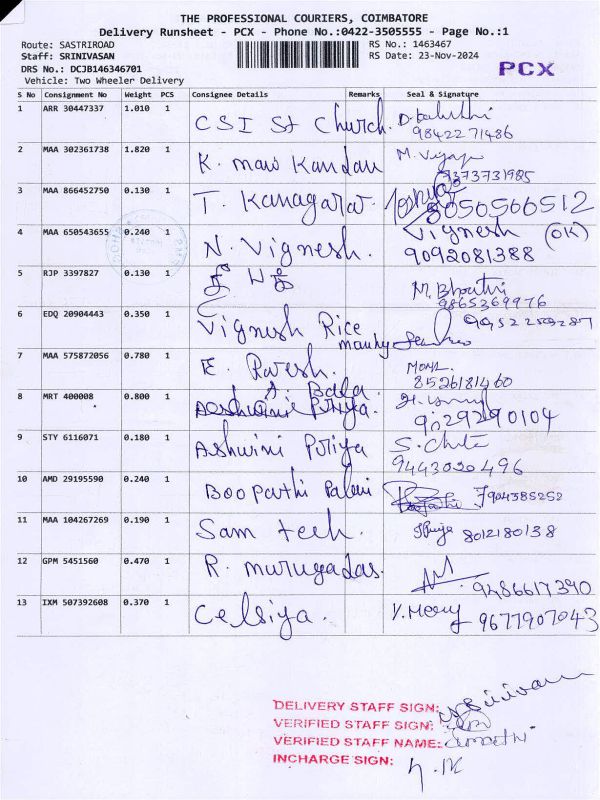 THE PROFESSIONAL COURIERS, COIMBATORE
Delivery Runsheet - PCX - Phone No.:0422-3505555 - Page No.:1
Route: SASTRIROAD RS No.: 1463467
Staff: SRINIVASAN RS Date: 23-Nov-2024
DRS No.: DCJB146346701 PCX
Vehicle: Two Wheeler Delivery
S No Consignment No Weight PCS Consignee Details Remarks Seal & Signature
1 ARR 30447337 1.010 1 CSI St Church.
9842271486
2 MAA 302361738 1.820 1 K. mani Kandan
7373731985
3 MAA 866452750 0.130 1 T. Kanagaraj
8050506512
4 MAA 650543655 0.240 1 N. Vignesh. Vignesh (OK)
9092081388
5 RJP 3397827 0.130 1 M. Bharthi
9865369976
6 EDQ 20904443 0.350 1 Vignesh Rice
7 MAA 575872056 0.780 1
8526181460
8 MRT 400008 0.800 1 A. Bala
9029290104
9 STY 6116071 0.180 1 Ashwini Priya
9443020496
10 AMD 29195590 0.240 1 Boopathi Palani 7904385252
11 MAA 104267269 0.190 1 Sam tech. 8012180138
12 GPM 5451560 0.470 1 R. murugadas.
9486617390
13 IXM 507392608 0.370 1 Celsiya. V. Mary 9677907043
DELIVERY STAFF SIGN:
VERIFIED STAFF SIGN:
VERIFIED STAFF NAME:
INCHARGE SIGN: